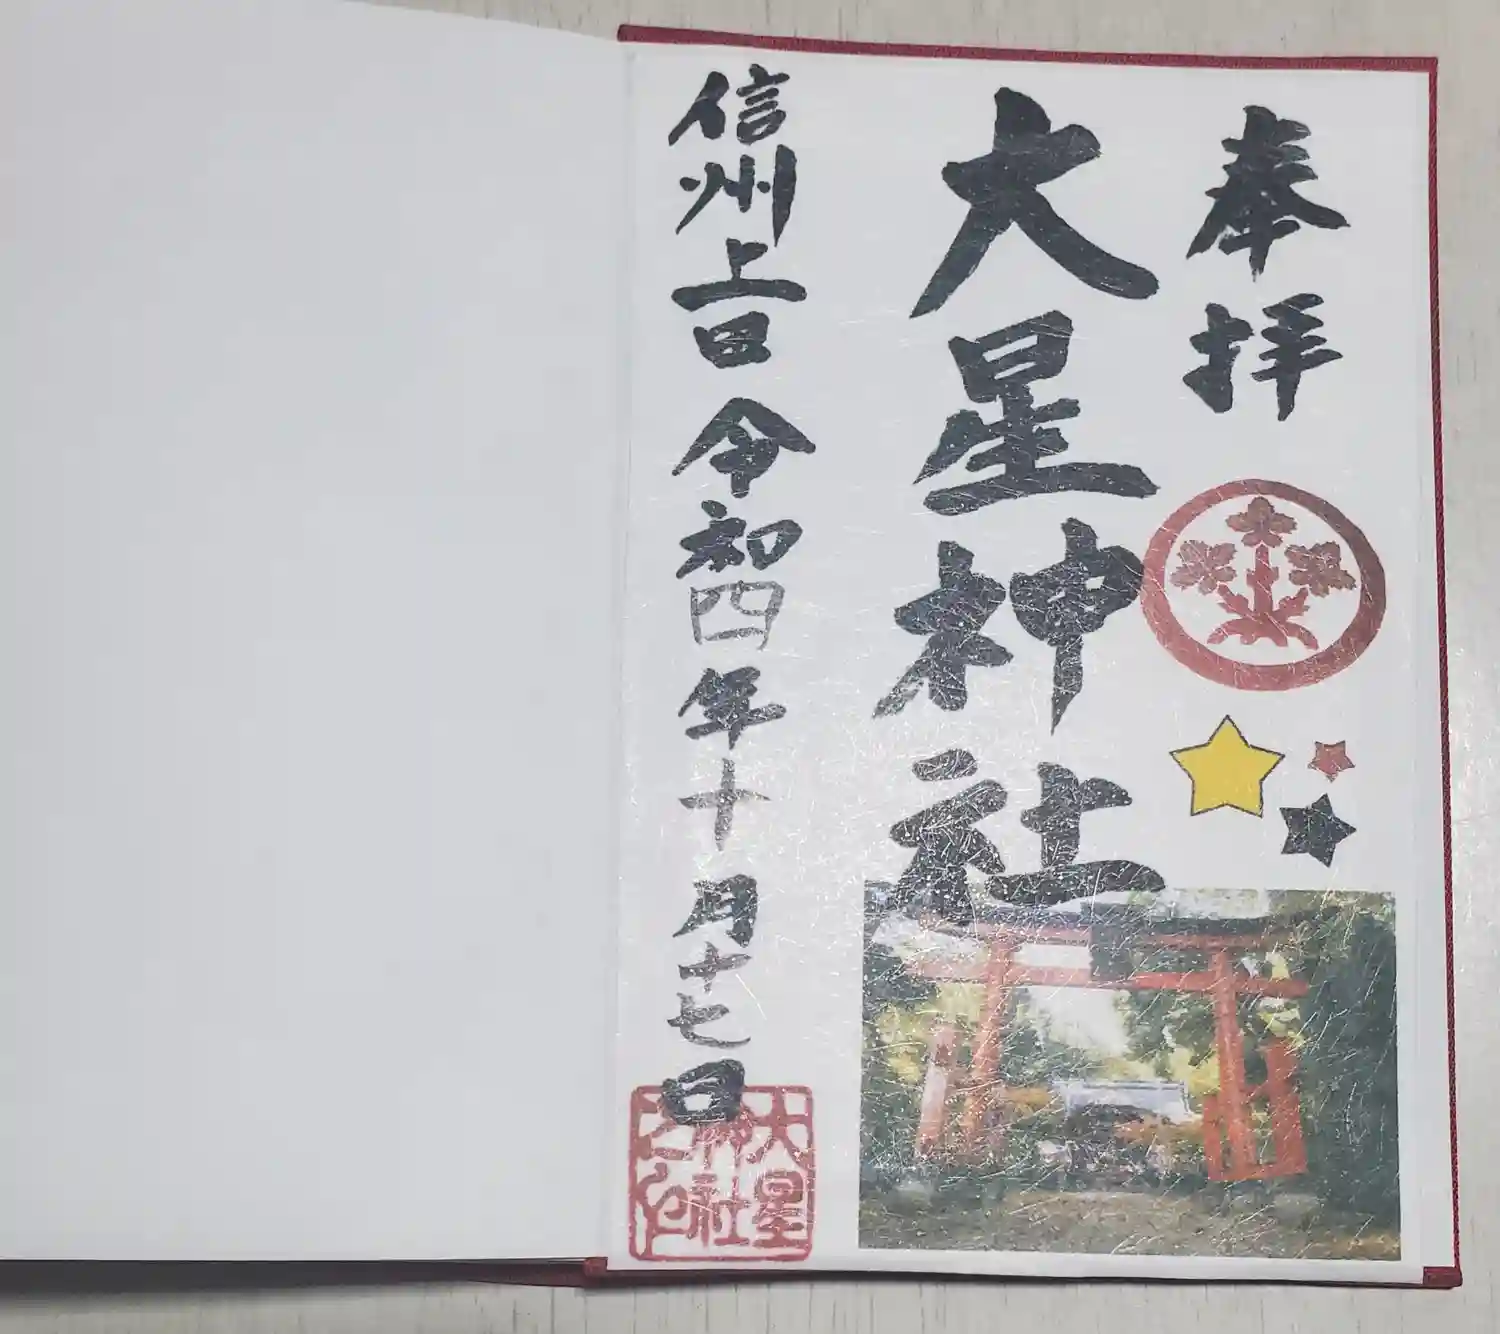 奉拝
大星神社
信州上田 令和四年十月十七日
大星
神社
之印